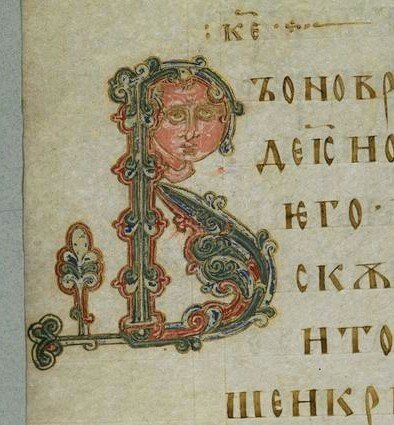 :к҃е:
Въоновр
деі҃сно
ѥго·
скѫ
нто
шенкр